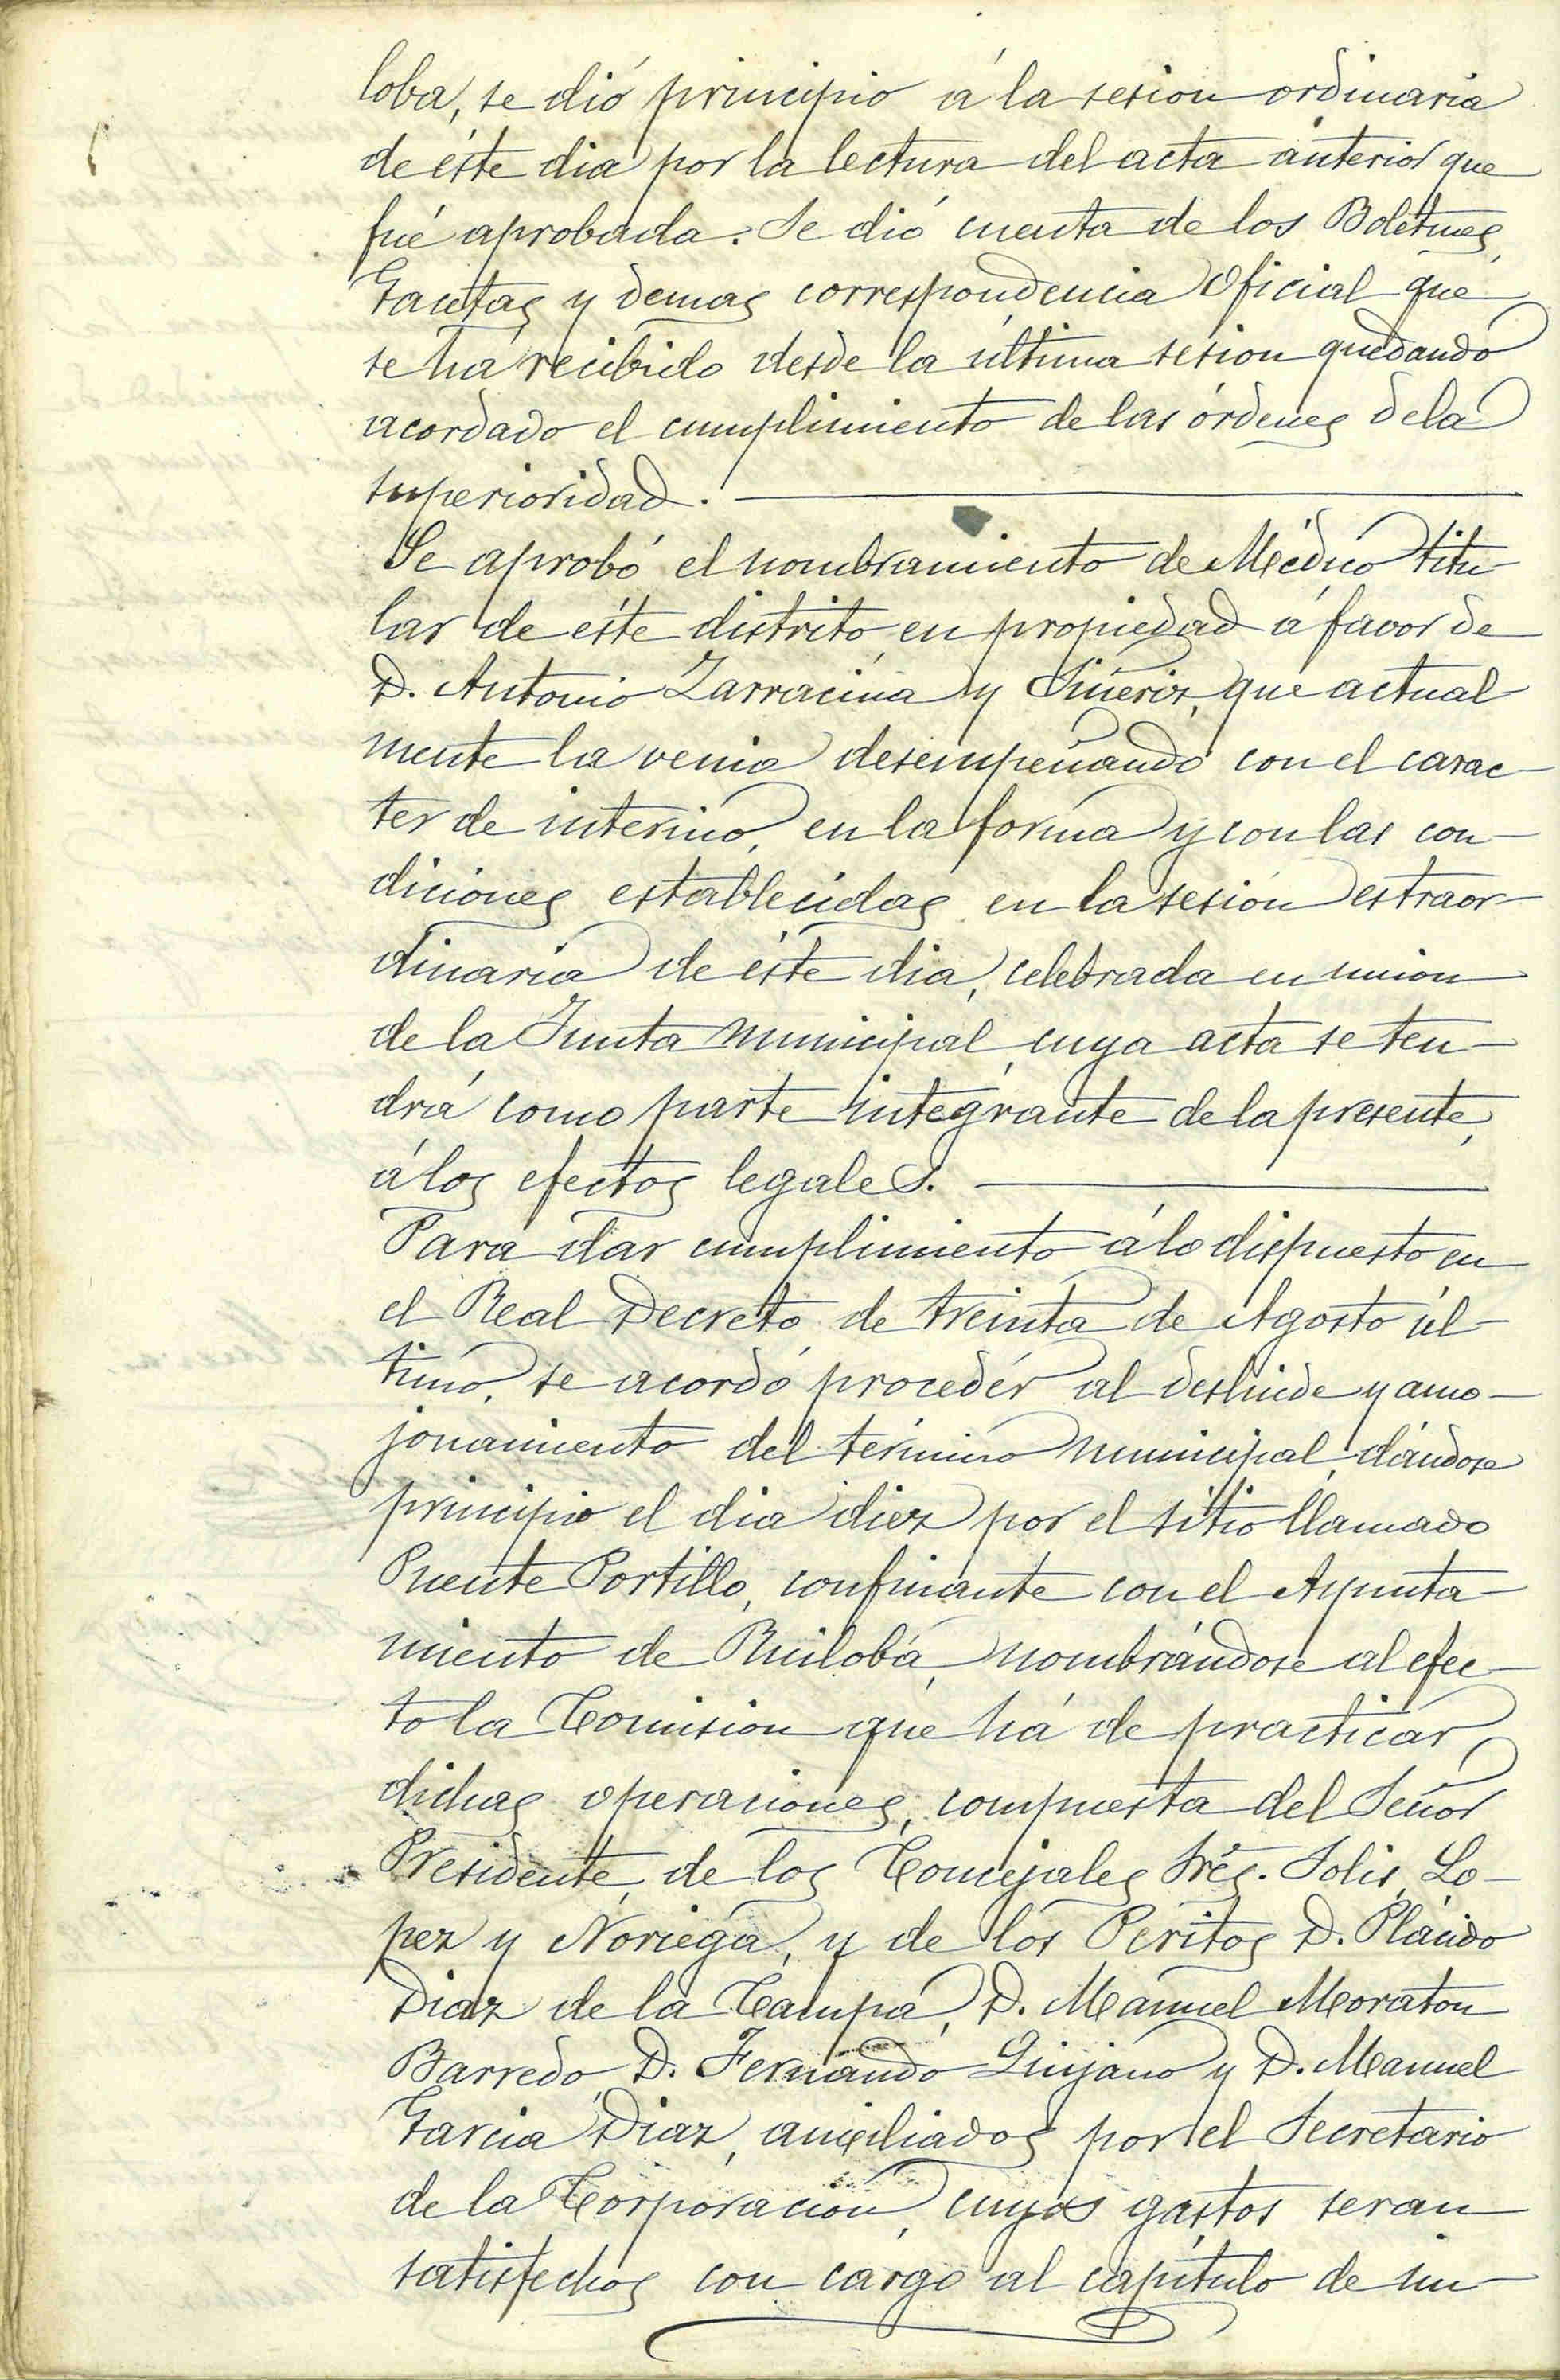 loba, se dió principio á la sesion ordinaria
de éste dia por la lectura del acta anterior que
fué aprobada. Se dió cuenta de los Boletines,
Gacetas y demas correspondencia Oficial que
se há recibido desde la última sesion quedando
acordado el cumplimiento de las órdenes dela
superioridad.
Se aprobó el nombramiento de Médico titu-
lar de éste distrito en propiedad á favor de
D. Antonio Zarracina y Siñeriz, que actual-
mente la venia desempeñando con el carac-
ter de interino, en la forma y con las con-
diciones establecidas en la sesión estraor-
dinaria de éste dia, celebrada en union
de la Junta Municipal, cuya acta se ten-
drá como parte integrante de la presente,
á los efectos legales.
Para dar cumplimiento á lo dispuesto en
el Real Decreto de treinta de Agosto úl-
timo, se acordó procedér al deslinde y amo-
jonamiento del término Municipal, dándose
principio el dia diez por el sitio llamado
Puente Portillo, confinante con el Ayunta-
miento de Ruiloba, nombrándose al efec-
to la Comision que há de practicar
dichas operaciones, compuesta del Señor
Presidente, de los Concejales Srés. Solis, Lo-
pez y Noriega, y de los Peritos D. Plácido
Diaz de la Campa, D. Manuel Moraton
Barredo, D. Fernando Quijano y D. Manuel
Garcia Diaz, auxiliados por el Secretario
de la Corporación, cuyos gastos seran
satisfechos con cargo al capítulo de im-